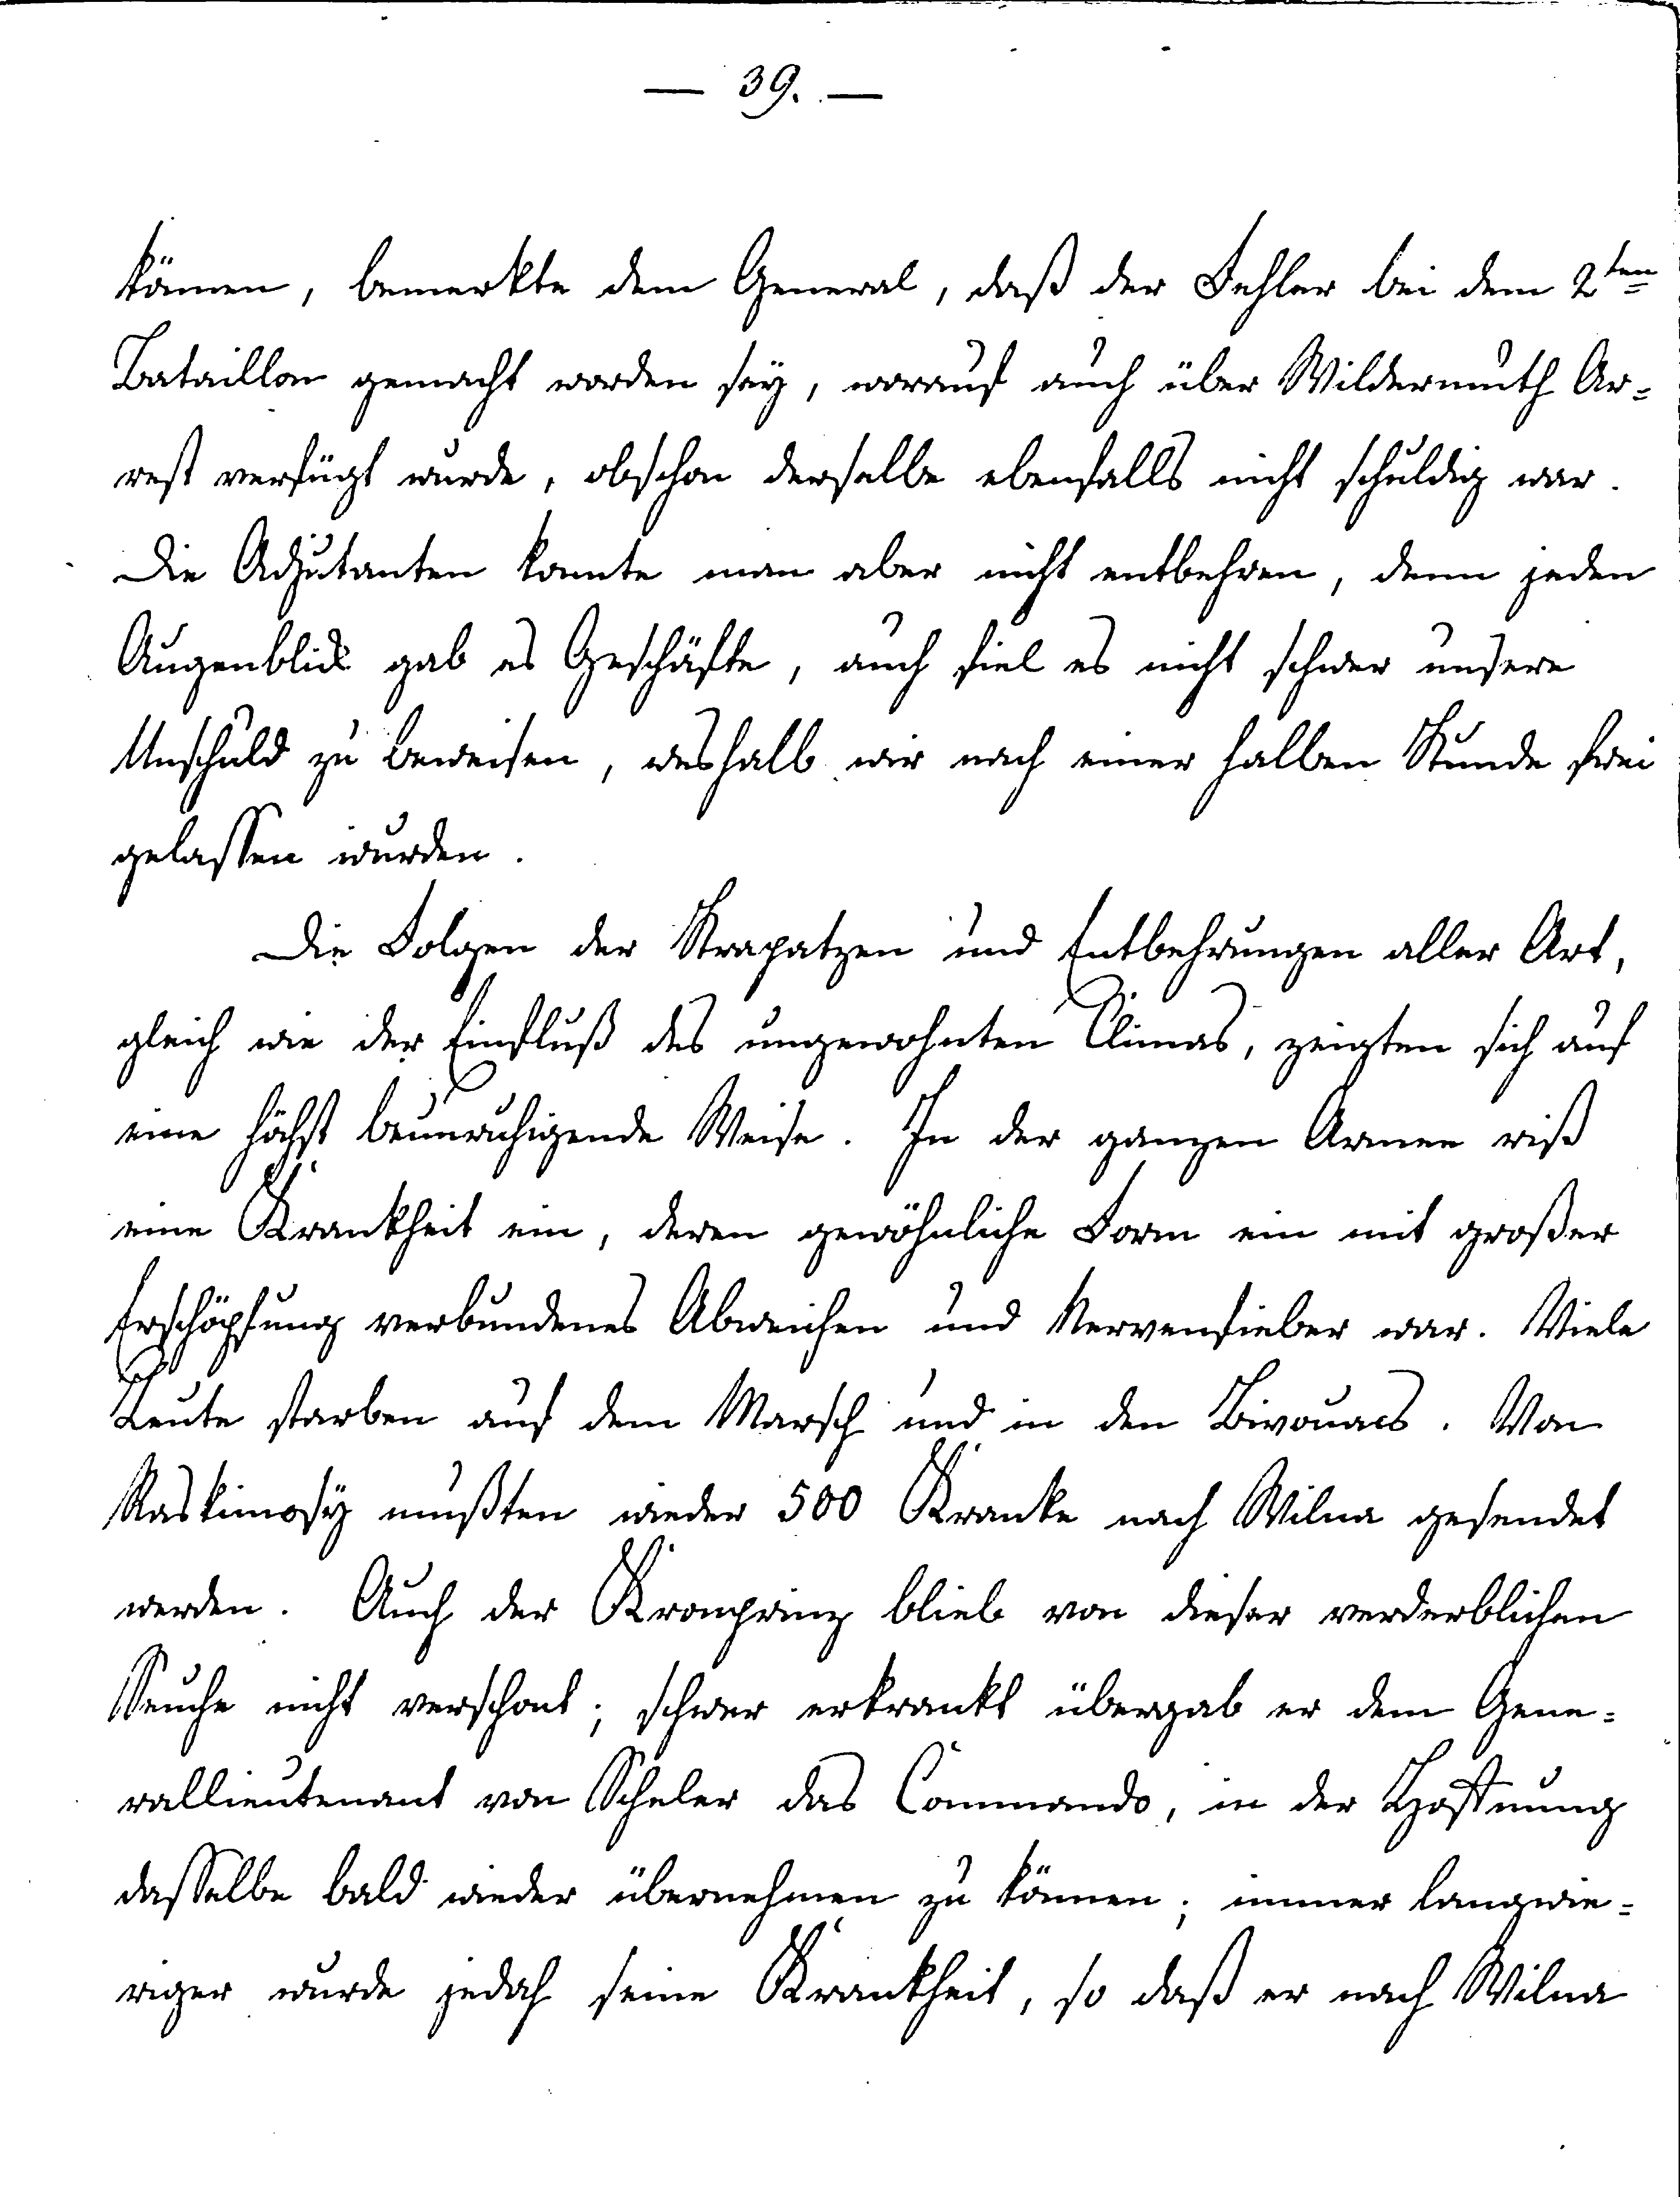 — 39. —
können, bemerkte dem General, daß der Fehler bei dem 2ten
Bataillon gemacht worden sey, worauf auch über Wildermuth Ar=
rest verfügt wurde, obschon derselbe ebenfalls nicht schuldig war.
Die Adjutanten konnte man aber nicht entbehren, denn jeden
Augenblick gab es Geschäfte, auch fiel es nicht schwer unsere
Unschuld zu beweisen, weshalb wir nach einer halben Stunde frei
gelassen wurden.
Die Folgen der Strapatzen und Entbehrungen aller Art,
gleich wie der Einfluß des ungewohnten Climas, zeigten sich auf
eine höchst beunruhigende Weise. In der ganzen Armee riß
eine Krankheit ein, deren gewöhnliche Form ein mit großer
Erschöpfung verbundenes Abweichen und Nervenfieber war. Viele
Leute starben auf dem Marsch und in den Bivouacs. Von
Raskimosÿ mußten wieder 500 Kranke nach Wilna gesendet
werden. Auch der Kronprinz blieb von dieser verderblichen
Seuche nicht verschont; schwer erkrankt übergab er dem Gene=
rallieutenant von Scheler das Commando, in der Hoffnung
dasselbe bald wieder übernehmen zu können; immer langwie=
riger wurde jedoch seine Krankheit, so daß er nach Wilna